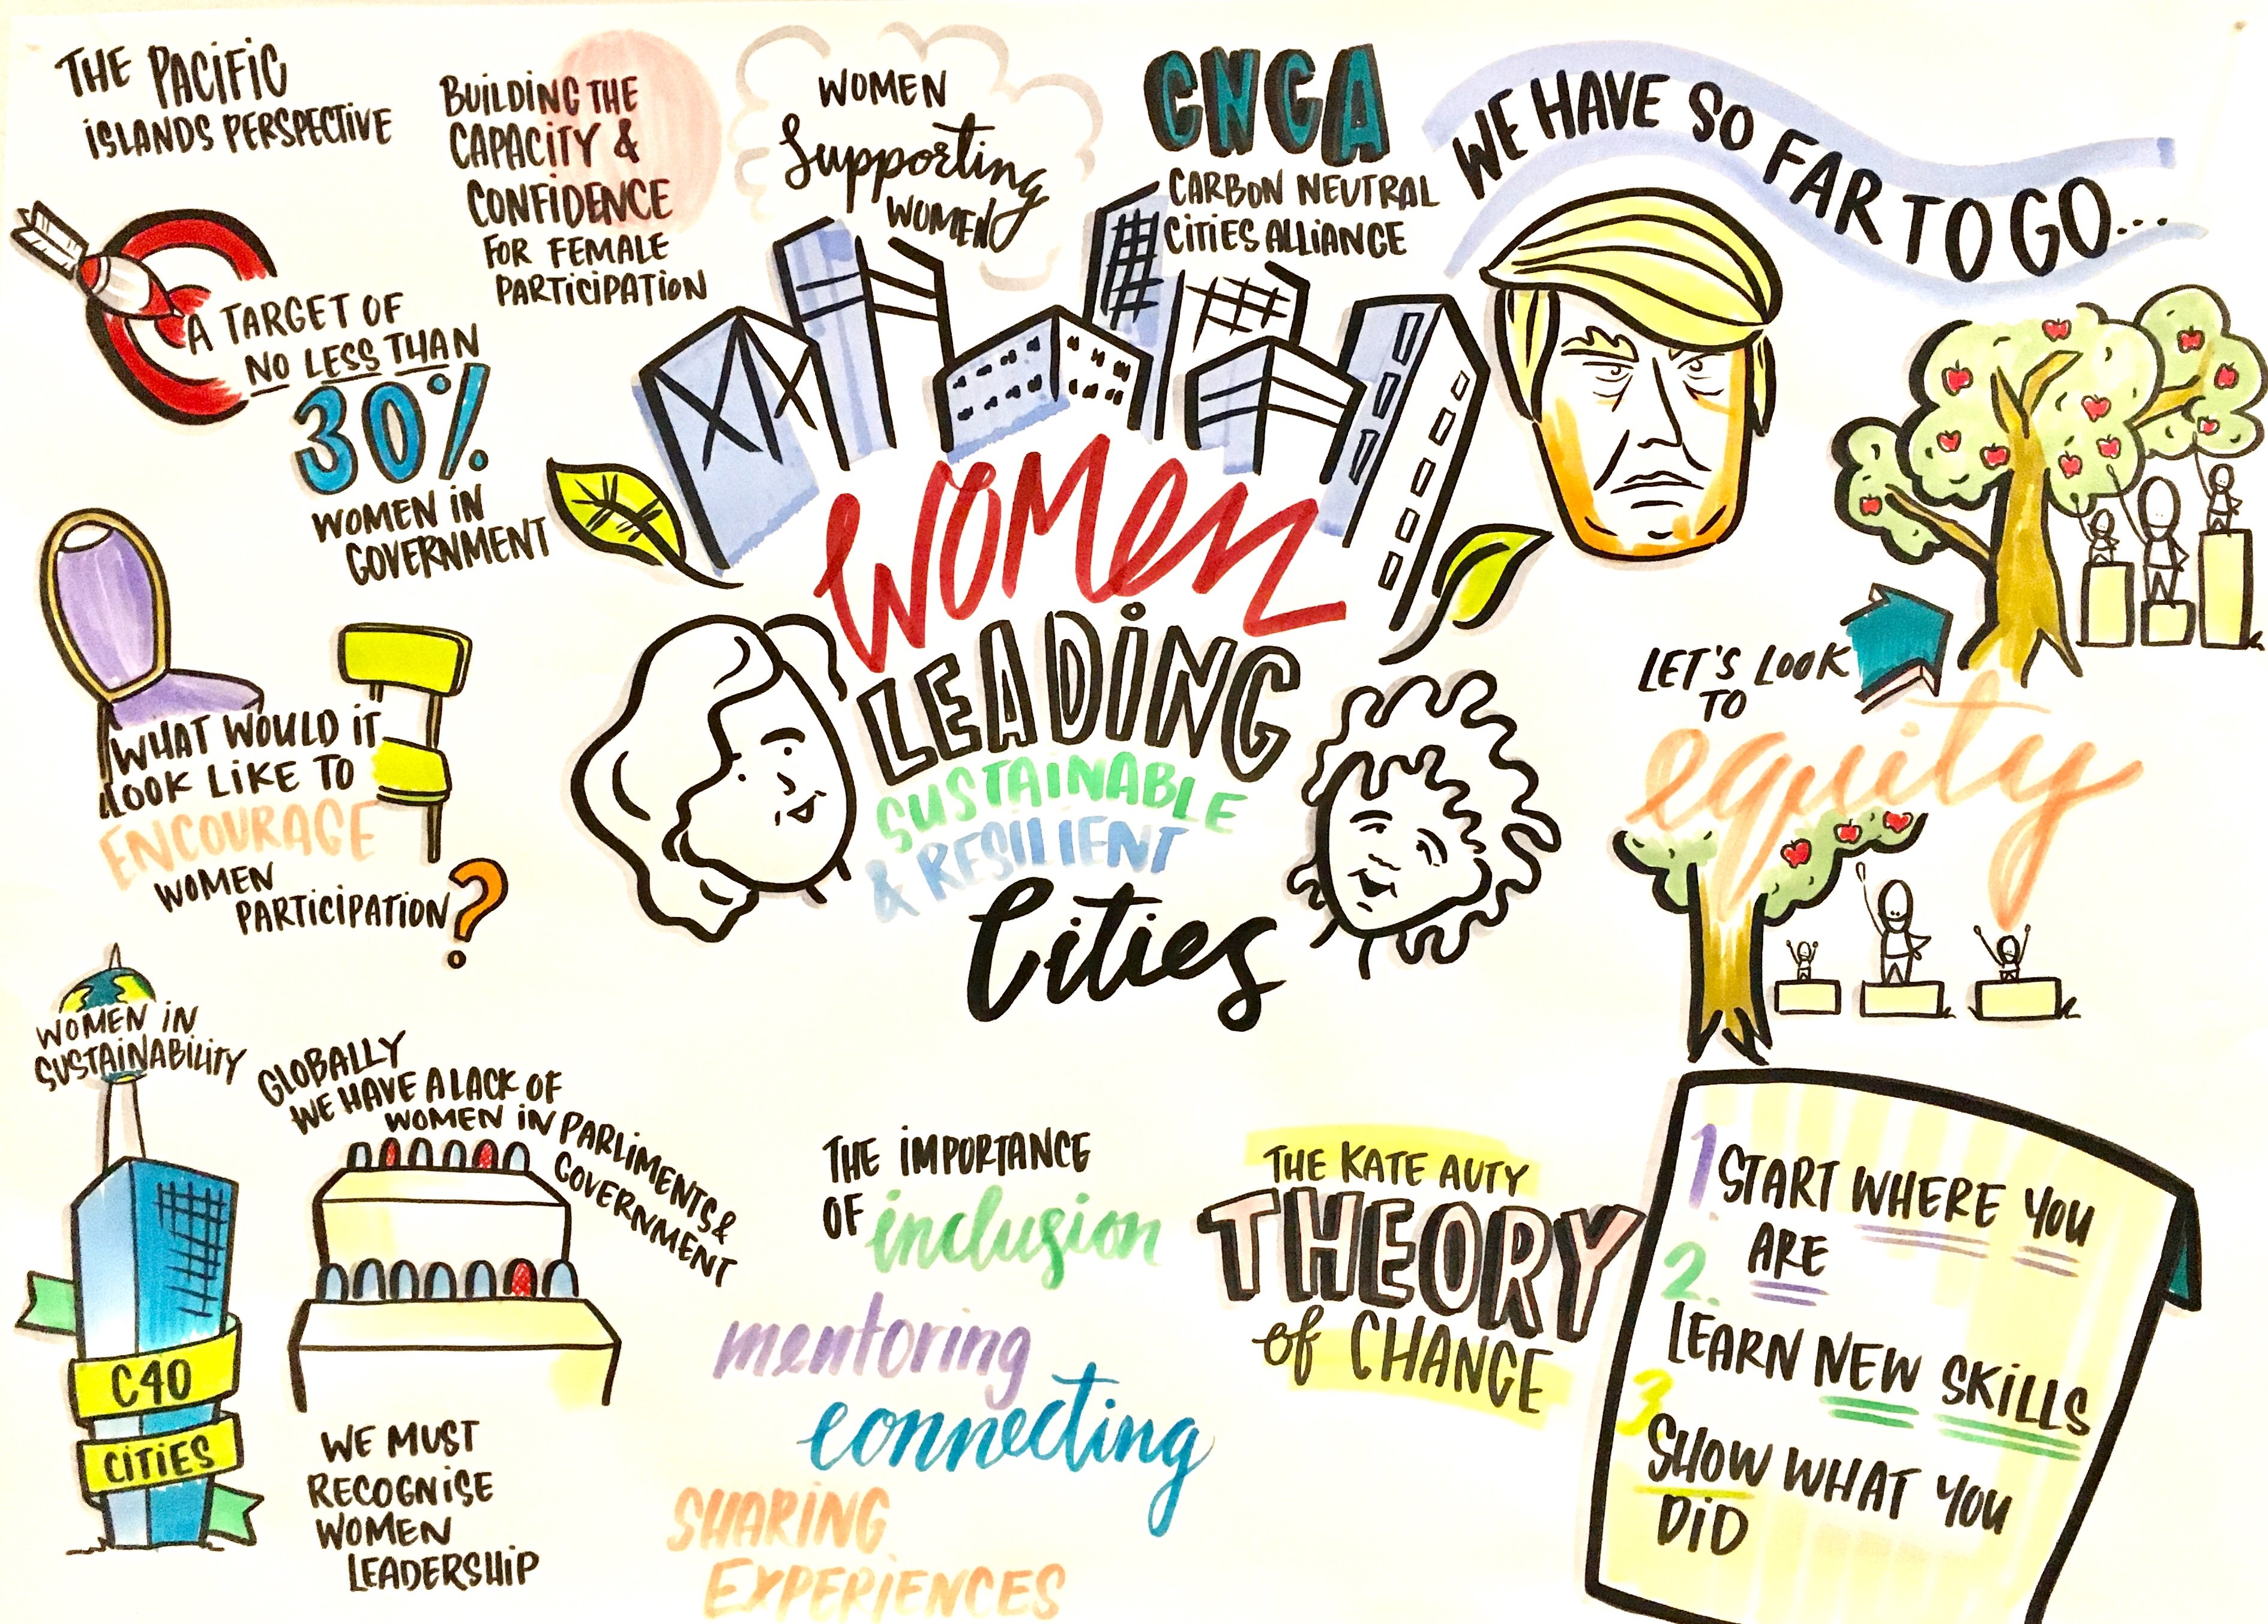 THE PACIFIC
ISLANDS PERSPECTIVE
BUILDING THE
CAPACITY &
CONFIDENCE
FOR FEMALE
PARTICIPATION
WOMEN
Supporting
WOMEN
CNCA
CARBON NEUTRAL
CITIES ALLIANCE
WE HAVE SO FAR TO GO...
A TARGET OF
NO LESS THAN
30%
WOMEN IN
GOVERNMENT
WOMEN
LEADING
SUSTAINABLE
& RESILIENT
Cities
LET'S LOOK
TO
equity
WHAT WOULD IT
LOOK LIKE TO
ENCOURAGE
WOMEN
PARTICIPATION?
WOMEN IN
SUSTAINABILITY
C40
CITIES
GLOBALLY
WE HAVE A LACK OF
WOMEN IN PARLIMENTS &
GOVERNMENT
WE MUST
RECOGNISE
WOMEN
LEADERSHIP
THE IMPORTANCE
OF inclusion
mentoring
connecting
SHARING
EXPERIENCES
THE KATE AUTY
THEORY
of CHANGE
1. START WHERE YOU
ARE
2.
LEARN NEW SKILLS
3
SHOW WHAT YOU
DID